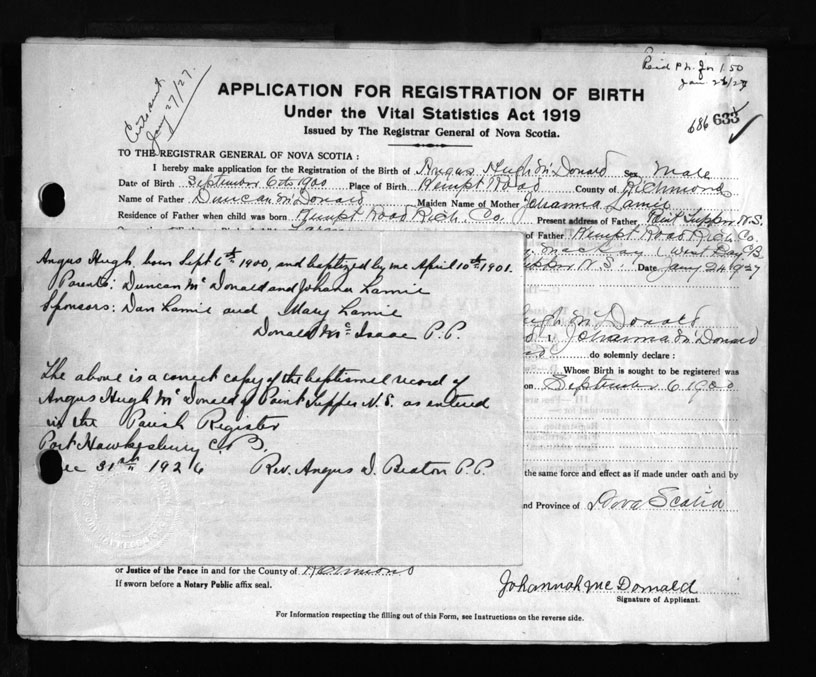 Jan. 26/27
Jany 27/27.
APPLICATION FOR REGISTRATION OF BIRTH
Under the Vital Statistics Act 1919
Issued by The Registrar General of Nova Scotia.
686 633
TO THE REGISTRAR GENERAL OF NOVA SCOTIA :
I hereby make application for the Registration of the Birth of Angus Hugh McDonald Sex Male
Date of Birth September 6th 1900 Place of Birth Kempt Road County of Richmond
Name of Father Duncan McDonald Maiden Name of Mother Johanna Lamie
Residence of Father when child was born Kempt Road Rich. Co. Present address of Father Point Tupper N.S.
of Father Kempt Road Rich. Co.
Angus Hugh, born Sept 6th 1900, and baptized by me April 10th 1901.
Parents: Duncan Mc Donald and Johanna Lamie
Sponsors: Dan Lamie and Mary Lamie
Donald Mc Isaac P.P.
The above is a correct copy of the baptismal record of
Angus Hugh Mc Donald of Point Tupper N.S. as entered
in the Parish Register
Port Hawkesbury C.B.
Dec 31st 1926 Rev. Angus D. Beaton P.P.
N.S. Date Jany 24 1927
Hugh McDonald
Johanna McDonald
do solemnly declare :
Whose Birth is sought to be registered was
on September 6 1900
the same force and effect as if made under oath and by
nd Province of Nova Scotia
or Justice of the Peace in and for the County of Richmond
If sworn before a Notary Public affix seal.
Johannah Mc Donald
Signature of Applicant.
For Information respecting the filling out of this Form, see Instructions on the reverse side.